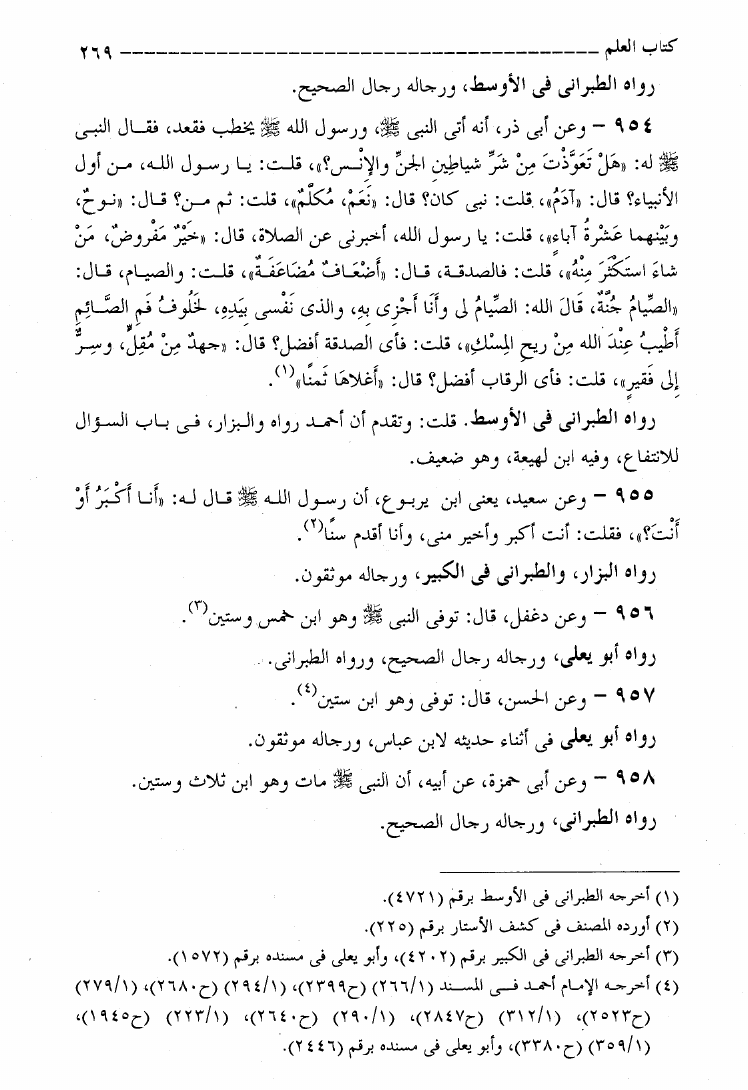 كتاب العلم ــــــــــــــــــــــــــــــــــــــــــــــــــــــــــــ ٢٦٩
رواه الطبرانى فى الأوسط، ورجاله رجال الصحيح.
٩٥٤ – وعن أبى ذر، أنه أتى النبى ﷺ، ورسول الله ﷺ يخطب فقعد، فقال النبى
ﷺ له: «هَلْ تَعَوَّذْتَ مِنْ شَرِّ شياطينِ الجنِّ والإِنْسِ؟»، قلت: يا رسول الله، من أول
الأنبياء؟ قال: «آدَمُ»، قلت: نبى كان؟ قال: «نَعَمْ، مُكَلَّمٌ»، قلت: ثم من؟ قال: «نوحٌ،
وبَيْنهما عَشْرةُ آباءٍ»، قلت: يا رسول الله، أخبرنى عن الصلاة، قال: «خَيْرٌ مَفْروضٌ، مَنْ
شاءَ استَكْثَرَ مِنْهُ»، قلت: فالصدقة، قال: «أضْعَافٌ مُضَاعَفَةٌ»، قلت: والصيام، قال:
«الصِّيامُ جُنَّةٌ، قَالَ الله: الصِّيامُ لى وأَنا أَجْزِى بِهِ، والذى نَفْسى بيَدِهِ، لَخُلُوفُ فَمِ الصَّائِمِ
أَطْيبُ عِنْدَ الله مِنْ ريحِ المِسْكِ»، قلت: فأى الصدقة أفضل؟ قال: «جهدٌ مِنْ مُقِلٍّ، وسِرٌّ
إلى فَقيرٍ»، قلت: فأى الرقاب أفضل؟ قال: «أَغْلاهَا ثَمنًا»(١).
رواه الطبرانى فى الأوسط. قلت: وتقدم أن أحمد رواه والبزار، فى باب السؤال
للانتفاع، وفيه ابن لهيعة، وهو ضعيف.
٩٥٥ – وعن سعيد، يعنى ابن يربوع، أن رسول الله ﷺ قال له: «أَنا أَكْبَرُ أَوْ
أَنْتَ؟»، فقلت: أنت أكبر وأخير منى، وأنا أقدم سنًا(٢).
رواه البزار، والطبرانى فى الكبير، ورجاله موثقون.
٩٥٦ – وعن دغفل، قال: توفى النبى ﷺ وهو ابن خمس وستين(٣).
رواه أبو يعلى، ورجاله رجال الصحيح، ورواه الطبرانى.
٩٥٧ – وعن الحسن، قال: توفى وهو ابن ستين(٤).
رواه أبو يعلى فى أثناء حديثه لابن عباس، ورجاله موثقون.
٩٥٨ – وعن أبى حمزة، عن أبيه، أن النبى ﷺ مات وهو ابن ثلاث وستين.
رواه الطبرانى، ورجاله رجال الصحيح.
(١) أخرجه الطبرانى فى الأوسط برقم (٤٧٢١).
(٢) أورده المصنف فى كشف الأستار برقم (٢٢٥).
(٣) أخرجه الطبرانى فى الكبير برقم (٤٢٠٢)، وأبو يعلى فى مسنده برقم (١٥٧٢).
(٤) أخرجه الإمام أحمد فى المسند (٢٦٦/١) (ح٢٣٩٩)، (٢٩٤/١) (ح٢٦٨٠)، (٢٧٩/١)
(ح٢٥٢٣)، (٣١٢/١) (ح٢٨٤٧)، (٢٩٠/١) (ح٢٦٤٠)، (٢٢٣/١) (ح١٩٤٥)،
(٣٥٩/١) (ح٣٣٨٠)، وأبو يعلى فى مسنده برقم (٢٤٤٦).